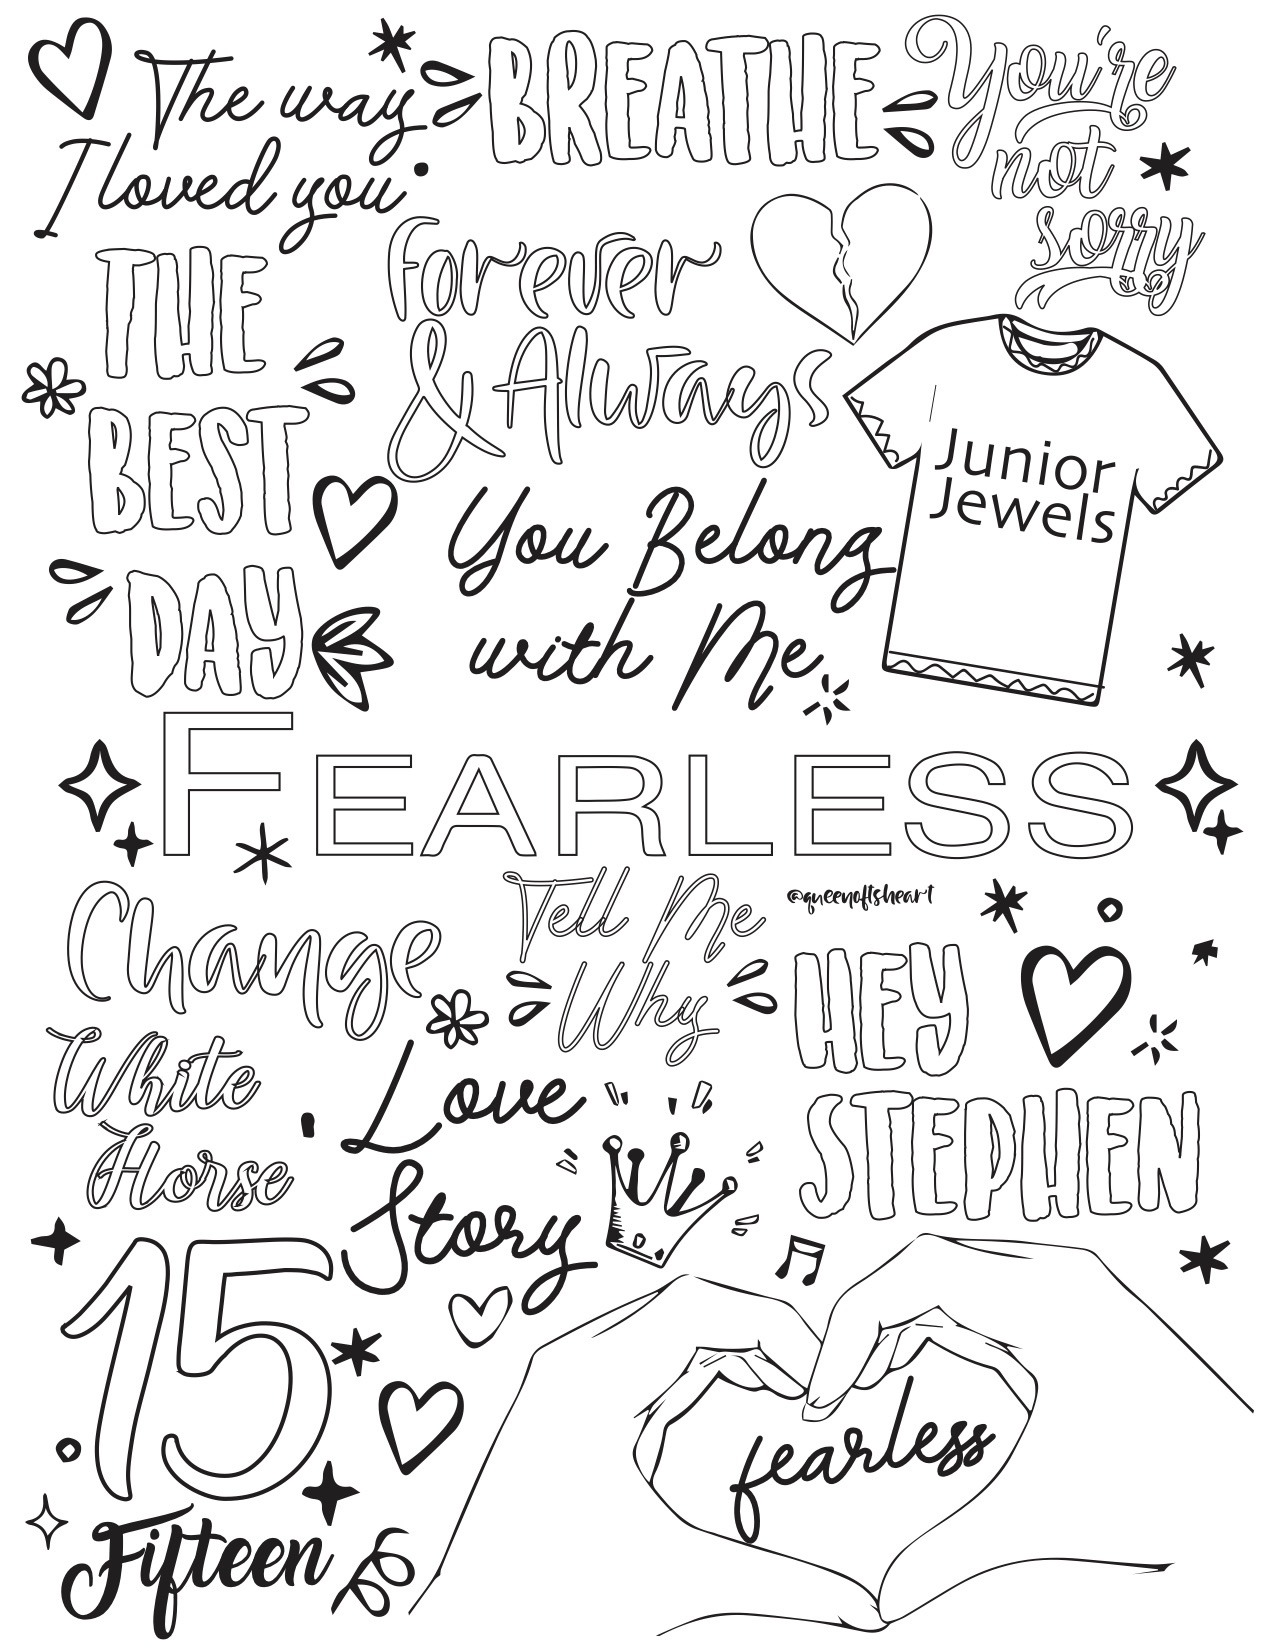 The way
I loved you
BREATHE
You're
not
sorry
THE
BEST
DAY
Forever
& Always
You Belong
with Me
Junior
Jewels
FEARLESS
Change
Tell Me
Why
@queenoftsheart
HEY
STEPHEN
White
Horse
Love
Story
15
Fifteen
fearless